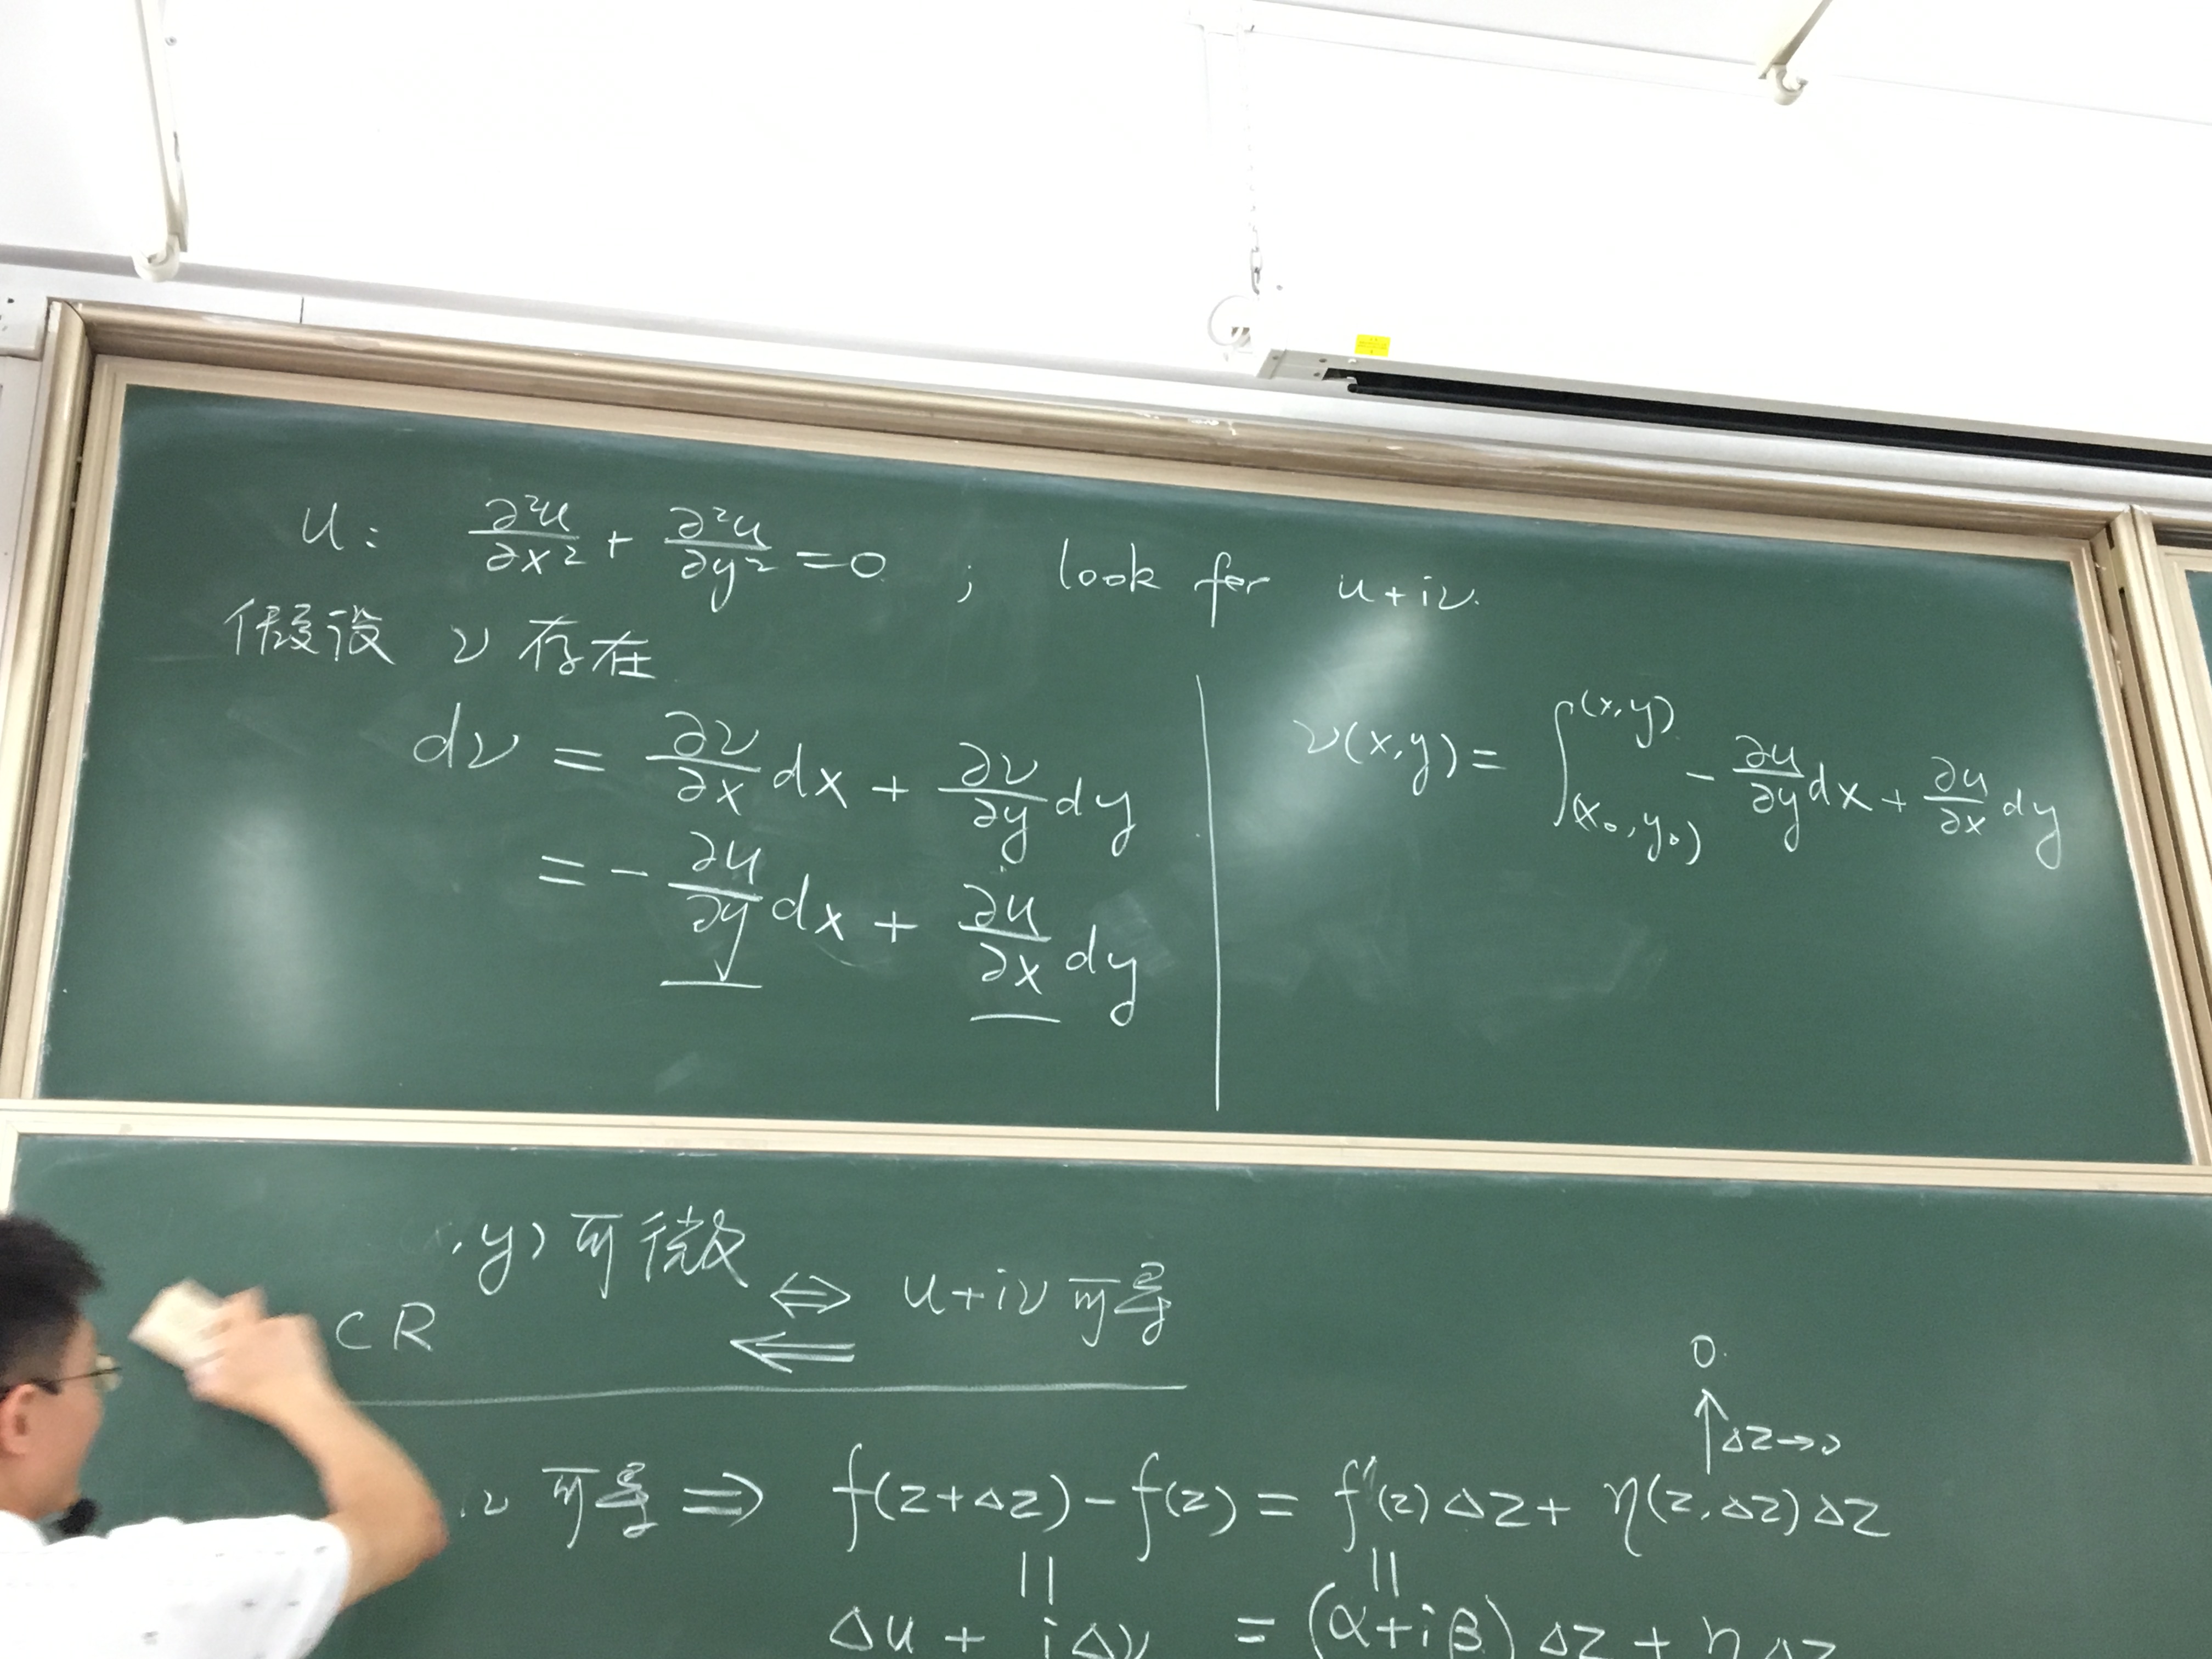 u: ∂²u/∂x² + ∂²u/∂y² = 0 ; look for u+iv.
假设 v 存在
dv = ∂v/∂x dx + ∂v/∂y dy
= - ∂u/∂y dx + ∂u/∂x dy
v(x,y) = ∫_(x₀,y₀)^(x,y) - ∂u/∂y dx + ∂u/∂x dy
,y) 可微
CR ⇔ u+iv 可导
⇐
0.
↑ Δz→0
v 可导 ⇒ f(z+Δz) - f(z) = f'(z)Δz + η(z,Δz)Δz
|| ||
Δu + iΔv = (α+iβ)Δz + ηΔz